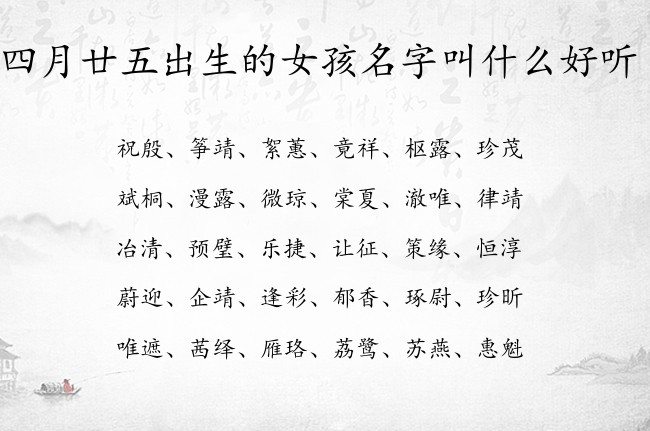 四月廿五出生的女孩名字叫什么好听
祝殷、筝靖、絮蕙、竟祥、枢露、珍茂
斌桐、漫露、微琼、棠夏、澈唯、律靖
冶清、预璧、乐捷、让征、策缘、恒淳
蔚迎、企靖、逢彩、郁香、琢尉、珍昕
唯遮、茜绎、雁珞、荔鹭、苏燕、惠魁